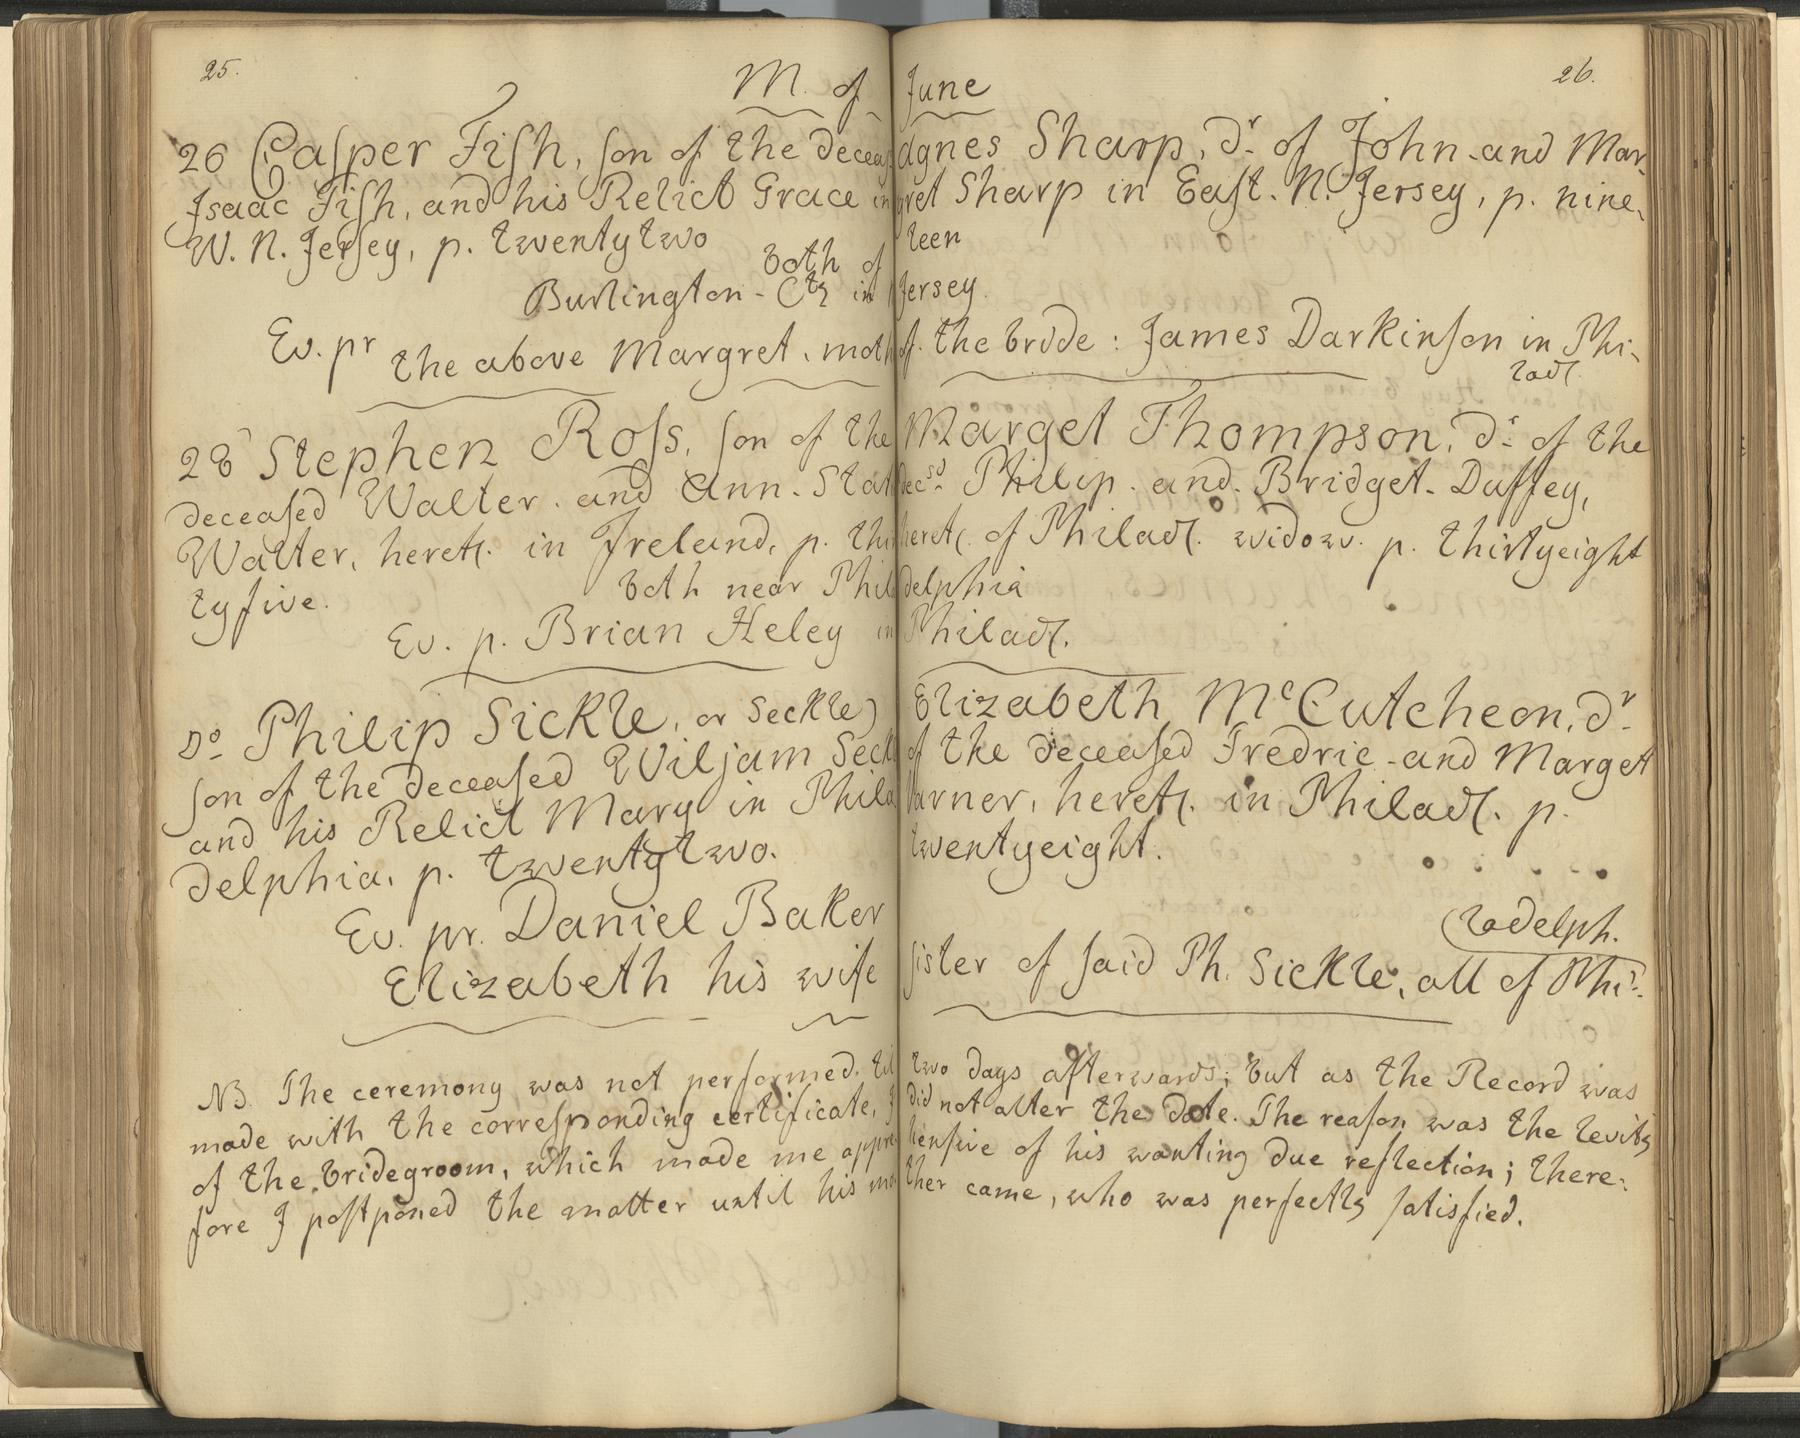 25.
M. of
26 Casper Fish, son of the deceas
Isaac Fish, and his Relict Grace in
W. N. Jersey, p. twentytwo
both of
Burlington - Cty in
Ev. pr the above Margret, moth
28 Stephen Ross, son of the
deceased Walter and Ann. Stat
Walter, heretf. in Ireland, p. thir
tyfive.
both near Phil
Ev. p. Brian Heley in
Do Philip Sickle, or Seckle)
son of the deceased Wiljam Seckl
and his Relict Mary in Phila
delphia, p. twentytwo.
Ev. pr. Daniel Baker
Elizabeth his wife
NB. The ceremony was not performed til
made with the corresponding certificate, I
of the bridegroom, which made me appre
fore I postponed the matter until his mo
26.
June
Agnes Sharp, dr. of John and Mar
gret Sharp in East. N. Jersey, p. nine
teen
Jersey
of the bride: James Darkinson in Phi
ladf.
Marget Thompson, dr. of the
decsd. Philip and Bridget Duffey,
heretf. of Philadf. widow. p. thirtyeight
delphia
Philadf.
Elizabeth McCutcheon, dr.
of the deceased Fredric and Marget
arner, heretf. in Philadf. p.
twentyeight.
ladelph.
sister of said Ph. Sickle, all of Phi
two days afterwards; but as the Record was
did not alter the date. The reason was the levity
hensive of his wanting due reflection; there:
ther came, who was perfectly satisfied.